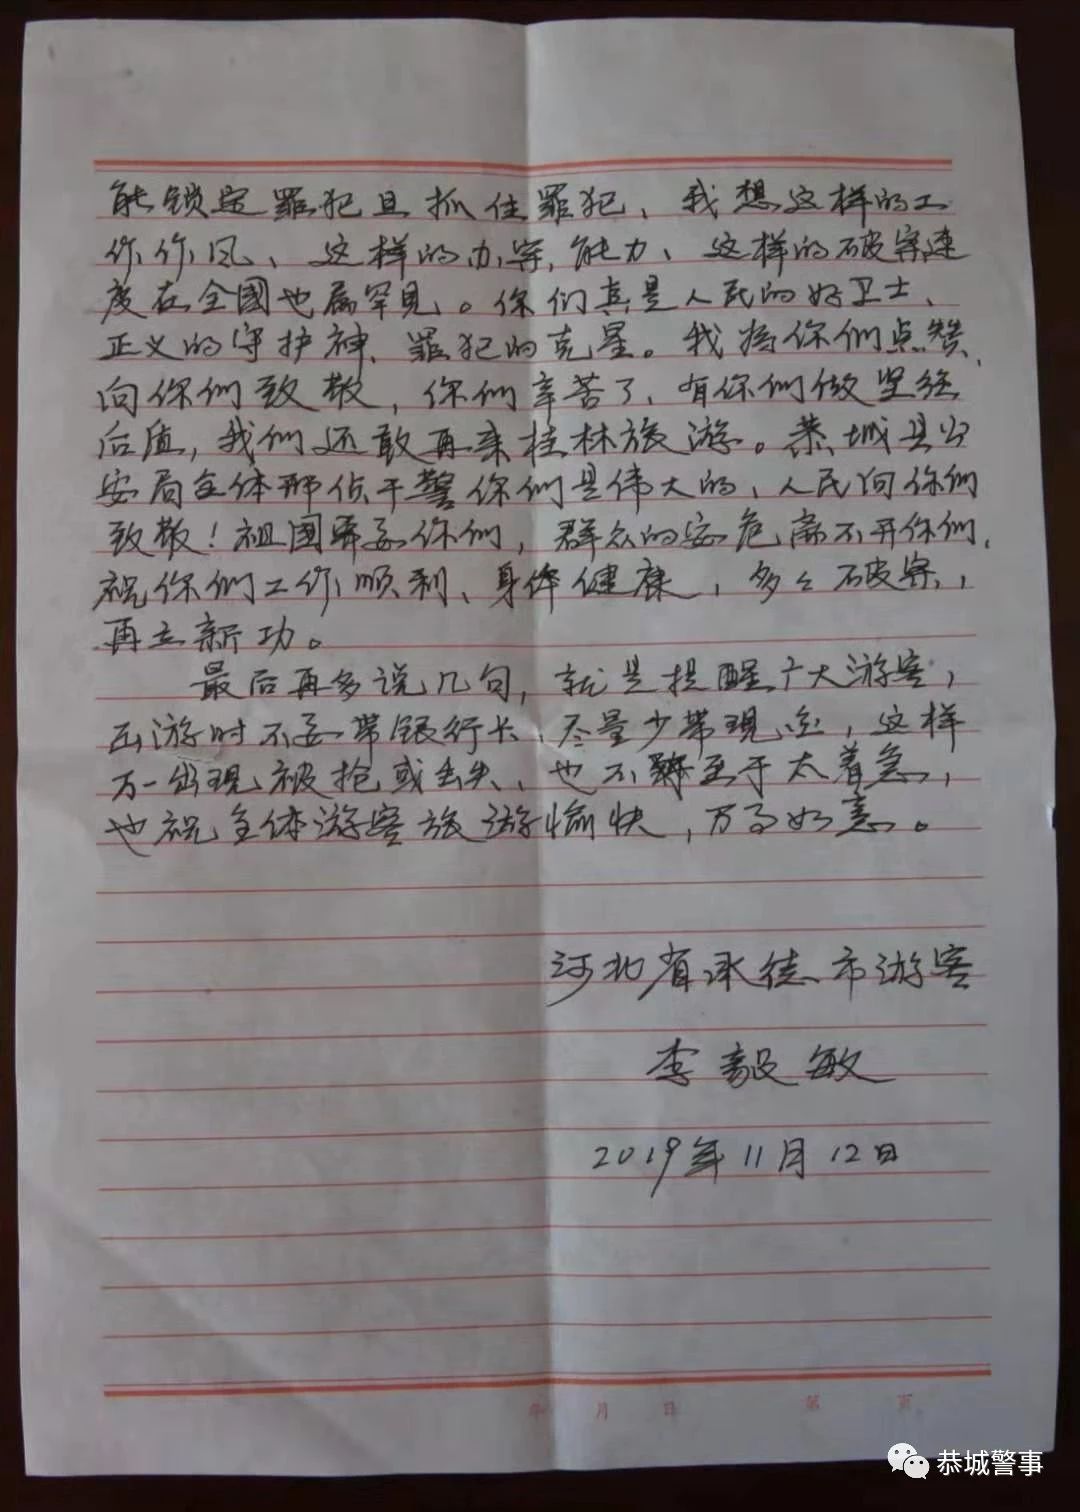 能锁定罪犯且抓住罪犯、我想这样的工
作作风、这样的办案能力、这样的破案速
度在全國也属罕见。你们真是人民的好卫士、
正义的守护神、罪犯的克星。我为你们点赞,
向你们致敬,你们辛苦了、有你们做坚强
后盾,我们还敢再来桂林旅游。恭城县公
安局全体刑侦干警你们是伟大的、人民向你们
致敬!祖国需要你们,群众的安危离不开你们,
祝你们工作顺利、身体健康,多々破案,
再立新功。
最后再多说几句,就是提醒广大游客,
出游时不要带银行卡、尽量少带现金,这样
万一出现被抢或丢失、也不至于太着急,
也祝全体游客旅游愉快,万事如意。
河北省承德市游客
李毅敏
2019年11月12日
年 月 日 第 页
恭城警事